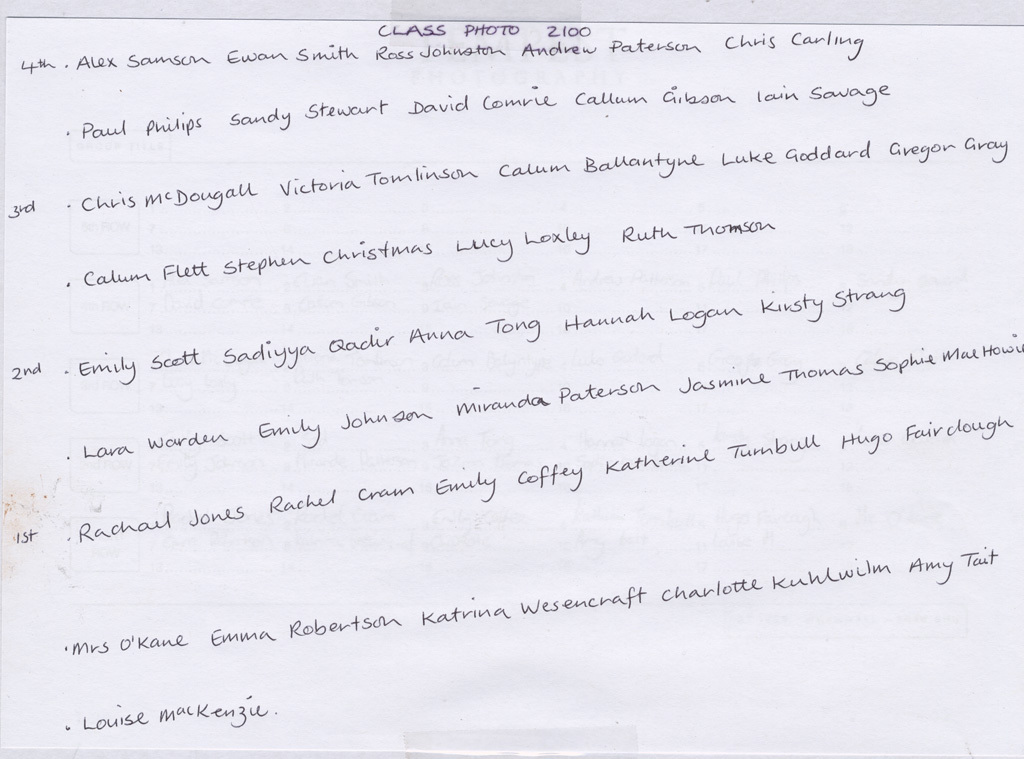 CLASS PHOTO 2100
4th . Alex Samson Ewan Smith Ross Johnston Andrew Paterson Chris Carling
. Paul Philips Sandy Stewart David Comrie Callum Gibson Iain Savage
3rd . Chris McDougall Victoria Tomlinson Calum Ballantyne Luke Goddard Gregor Gray
. Calum Flett Stephen Christmas Lucy Loxley Ruth Thomson
2nd . Emily Scott Sadiyya Qadir Anna Tong Hannah Logan Kirsty Strang
. Lara Warden Emily Johnson Miranda Paterson Jasmine Thomas Sophie MacHowi
1st . Rachael Jones Rachel Cram Emily Coffey Katherine Turnbull Hugo Fairclough
. Mrs O'Kane Emma Robertson Katrina Wesencraft Charlotte Kuhlwilm Amy Tait
. Louise MacKenzie.